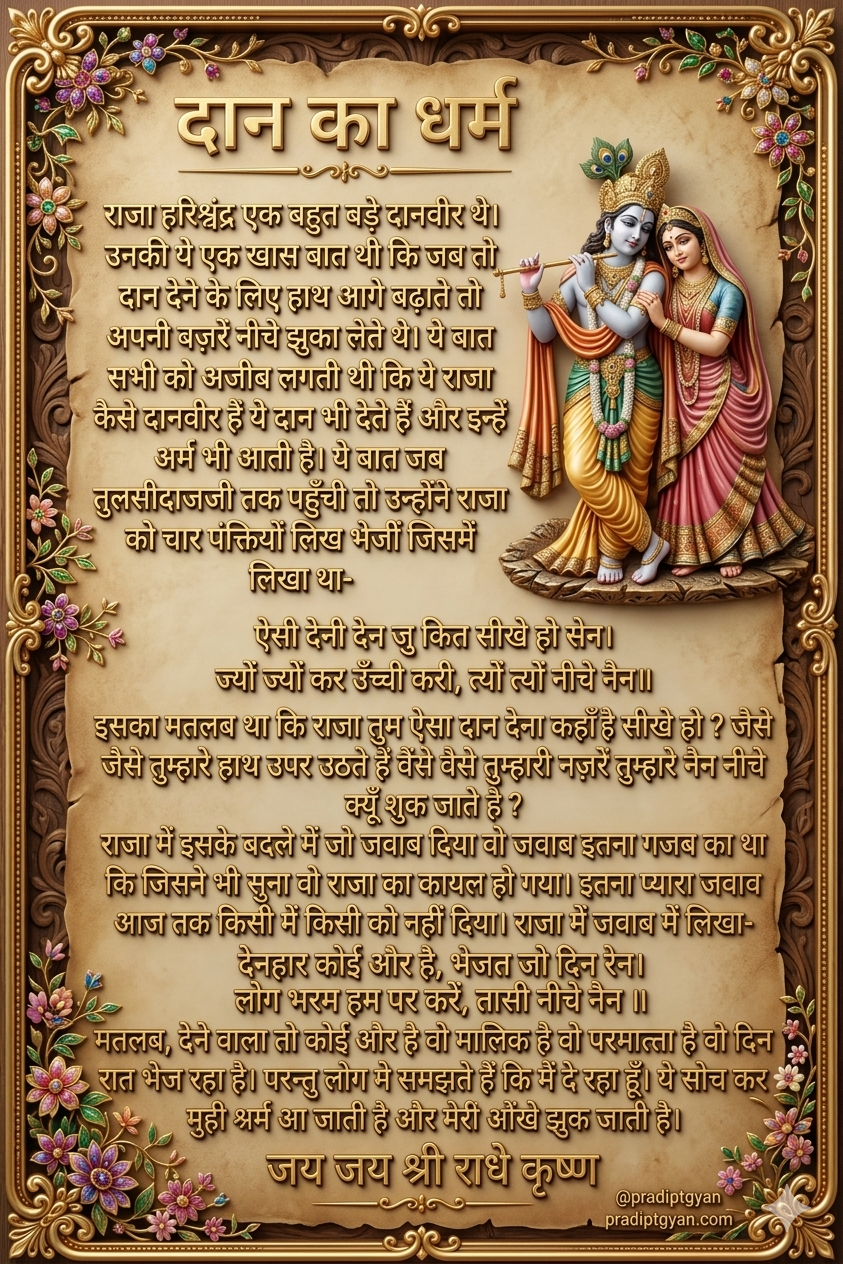 दान का धर्म
राजा हरिश्चंद्र एक बहुत बड़े दानवीर थे।
उनकी ये एक खास बात थी कि जब तो
दान देने के लिए हाथ आगे बढ़ाते तो
अपनी बज़रें नीचे झुका लेते थे। ये बात
सभी को अजीब लगती थी कि ये राजा
कैसे दानवीर हैं ये दान भी देते हैं और इन्हें
अर्म भी आती है। ये बात जब
तुलसीदाजजी तक पहुँची तो उन्होंने राजा
को चार पंक्तियों लिख भेजीं जिसमें
लिखा था-
ऐसी देनी देन जु कित सीखे हो सेन।
ज्यों ज्यों कर उँच्ची करी, त्यों त्यों नीचे नैन॥
इसका मतलब था कि राजा तुम ऐसा दान देना कहाँ है सीखे हो ? जैसे
जैसे तुम्हारे हाथ उपर उठते हें वैंसे वैसे तुम्हारी नज़रें तुम्हारे नैन नीचे
क्यूँ शुक जाते है ?
राजा में इसके बदले में जो जवाब दिया वो जवाब इतना गजब का था
कि जिसने भी सुना वो राजा का कायल हो गया। इतना प्यारा जवाव
आज तक किसी में किसी को नहीं दिया। राजा में जवाब में लिखा-
देनहार कोई और है, भेजत जो दिन रेन।
लोग भरम हम पर करें, तासी नीचे नैन ॥
मतलब, देने वाला तो कोई और है वो मालिक है वो परमात्ता है वो दिन
रात भेज रहा है। परन्तु लोग मे समझते हैं कि मैं दे रहा हूँ। ये सोच कर
मुही श्रर्म आ जाती है और मेरीं ओंखे झुक जाती है।
जय जय श्री राधे कृष्ण
@pradiptgyan
pradiptgyan.com